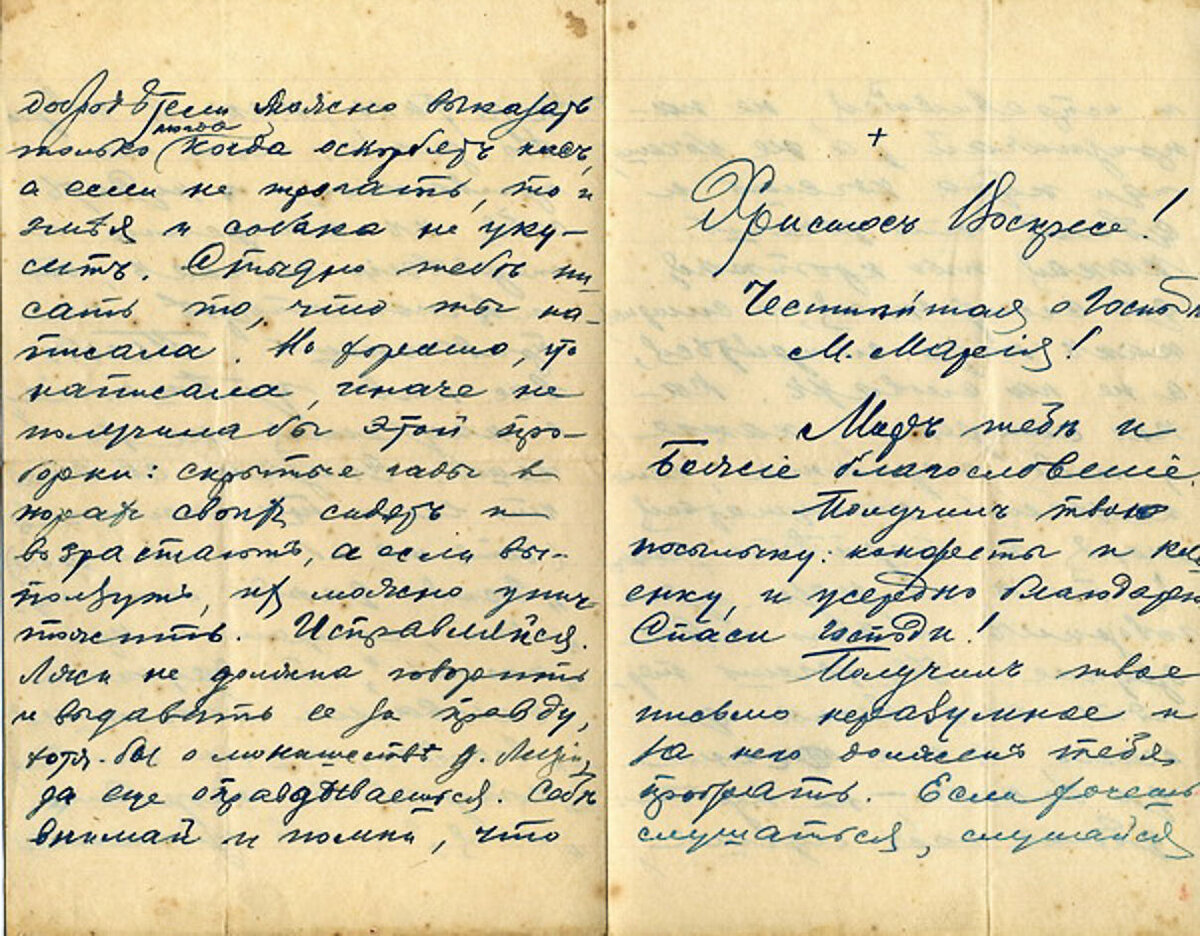 добродѣтели можно выказать
только тогда когда оскорбятъ насъ,
а если не трогать, то и
змѣя и собака не уку-
ситъ. Стыдно тебѣ пи
сать то, что ты на-
писала. Но хорошо, что
написала, иначе не
получила бы этой про-
борки: скрытые гады в
норах своих сидятъ и
возрастаютъ, а если вы-
ползутъ, их можно унич-
тожить. Исправляйся.
Лжи не должна говорить
и выдавать ее за правду,
хотя-бы о монашествѣ
да еще оправдываешься. Себѣ
внимай и помни, что
+
Христосъ Воскресе!
Честнѣйшая о Госпо
М. Марія!
Миръ тебѣ и
Божіе благословеніе.
Получилъ твою
посылочку: конфекты и
енку, и усердно благодарю
Спаси Господи!
Получилъ твое
письмо неразумное и
за него долженъ тебя
пробрать. Если хочешь
слушаться, слушайся